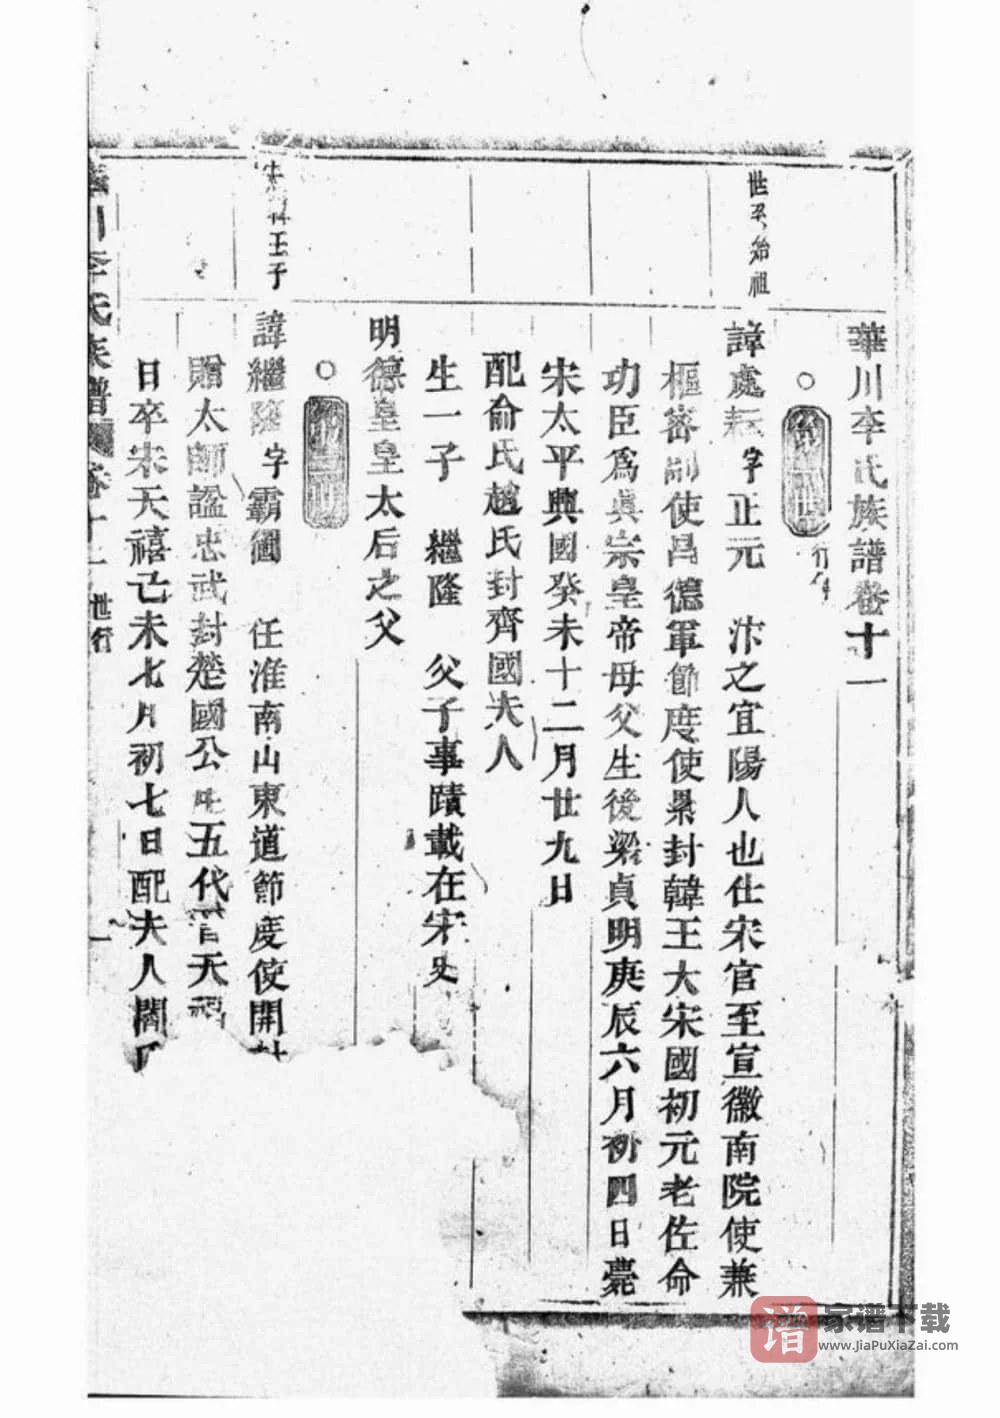 華川李氏族譜卷十一
世系始祖
諱處耘字正元　汴之宜陽人也仕宋官至宣徽南院使兼
樞密副使昌德軍節度使累封韓王大宋國初元老佐命
功臣爲真宗皇帝母父生後梁貞明庚辰六月初四日薨
宋太平興國癸未十二月廿九日
配俞氏趙氏封齊國夫人
生一子　繼隆　父子事蹟載在宋史
明德皇皇太后之父
王子
諱繼隆字霸圖　任淮南山東道節度使開封
贈太師諡忠武封楚國公生五代晉天福
日卒宋天禧己未七月初七日配夫人閻氏
華川李氏族譜 卷十一 世行 一
家谱下载
www.JiaPuXiaZai.com